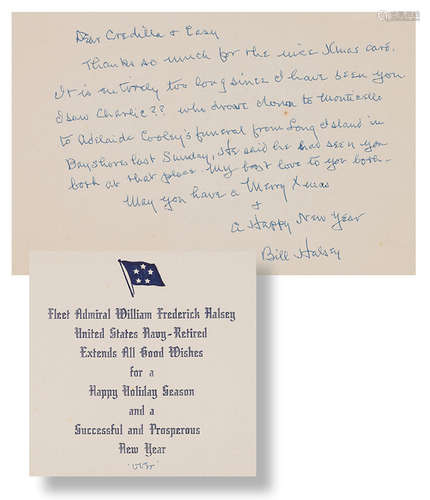 Dear Credilla & Casy
Thanks so much for the nice Xmas card.
It is entirely too long since I have seen you
I saw Charlie?? who drove down to Monticello
to Adelaide Cooley's funeral from Long Island in
Bayshore last Sunday, He said he had seen you
both at that place My best love to you both—
May you have a Merry Xmas
+
a Happy New Year
Bill Halsey
Fleet Admiral William Frederick Halsey
United States Navy-Retired
Extends All Good Wishes
for a
Happy Holiday Season
and a
Successful and Prosperous
New Year